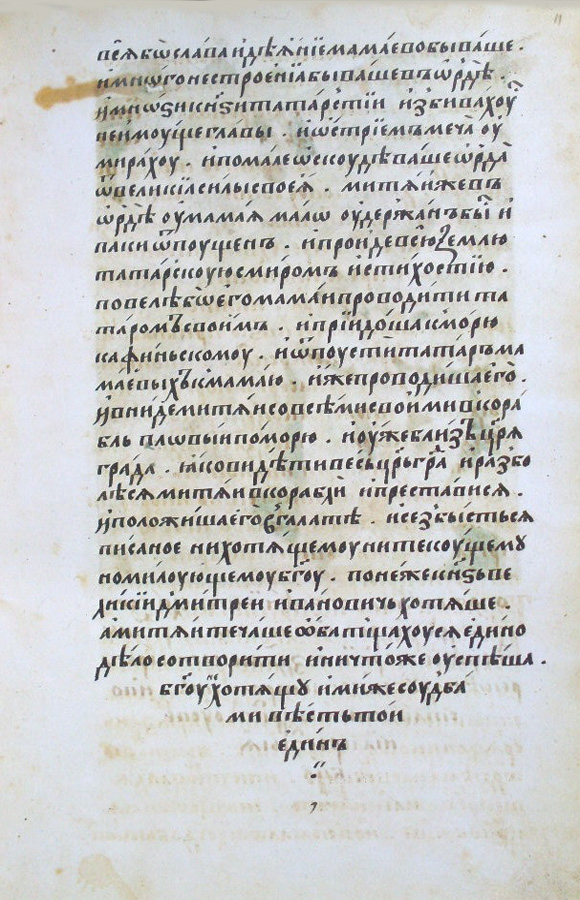 всѧ бѡ слава и дѣѧнїе мамаево бываше .
и мнѡго нестроенїа бываше въ ѡрдѣ .
и мнѡѕи кнѕи татарстїи избивахоу
неимоуще главы . и ѡстрїемъ меча оу
мирахоу . и помалѣ ѡскоудѣваше ѡрда
ѿ великїа силы своеѧ . митѧи же въ
ѡрдѣ оу мамаѧ малѡ оудержанъ бы и
паки ѿпоущенъ . и проиде всю землю
татарскоую с миром и с тихостїю .
повелѣ бѡ его мамаи проводити та
таромъ своимъ . и прїидоша к морю
кафиньскомоу . и ѿпоусти татаръ ма
маевыхъ к мамаю . иже проводиша его .
и вниде митѧи со всѣми своими в кора
бль плаѡвыи по морю . и оуже близъ црѧ
града . ꙗко видѣти весь црьгра и разбо
лѣсѧ митѧи в корабли и престависѧ .
и положиша его в галатѣ . и сезбысться
писаное ни хотѧщемоу ни текоущемꙋ
но милоующемоу бгоу . понеже кнѕь ве
ликїи дмитреи ивановичь хотѧше .
а митѧи течаше ѡба тщахоусѧ едино
дѣло сотворити и ничтоже оуспѣша .
бгоу хотѧщꙋ ими же соудба
ми вѣсть тои
единъ